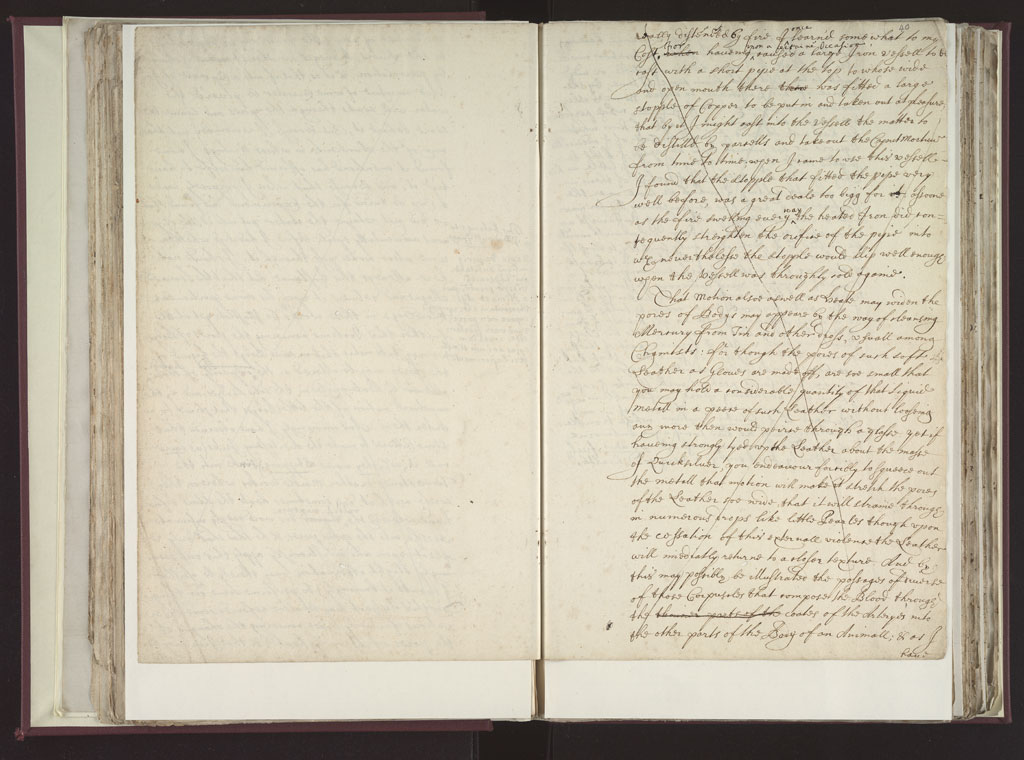 40
really distended by fire I once learned somewhat to my
Cost, for haueing upon a certaine Occasion caused a large Iron vessell to be
cast with a short pipe at the top to whose wide
and open mouth there was fitted a large
stopple of Copper to be put in and taken out at pleasure
that by it I might cast into the vessell the matter to
be distilld by parcells and take out the Caput Mortuu
from time to time, when I came to use this vessell
I found that the stopple that fitted the pipe very
well before, was a great deale too bigg for it, assoone
as the fire swelling every way the heated Iron did con=
sequently streighten the orifice of the pipe into
wch nevertheless the stopple would slip well enough
when the vessell was throughly cold againe.
That Motion alsoe aswell as heate may widen the
pores of Bodys may appeare by the way of cleansing
Mercury from Tin and other dross, usuall among
Chymists: for though the pores of such soft
Leather as Gloves are made off, are soe small that
you may hold a considerable quantity of that Liquid
Metall in a peece of such Leather without loosing
any more then would peirce through a glasse yet if
haueing strongly tyed up the Leather about the masse
of Quicksilver, you endeavour forcibly to squeeze out
the metall that motion will make & stretch the pores
of the Leather soe wide that it will straine through
in numerous drops like little Pearles though upon
the cessation of this externall violence the Leather
will imediatly returne to a closer texture. And by
this may possibly be illustrated the passages of diverse
of those Corpuscles that compose the Blood through
the thinner parts of the coates of the Arterys into
the other parts of the Body of an Animall: & as I
haue